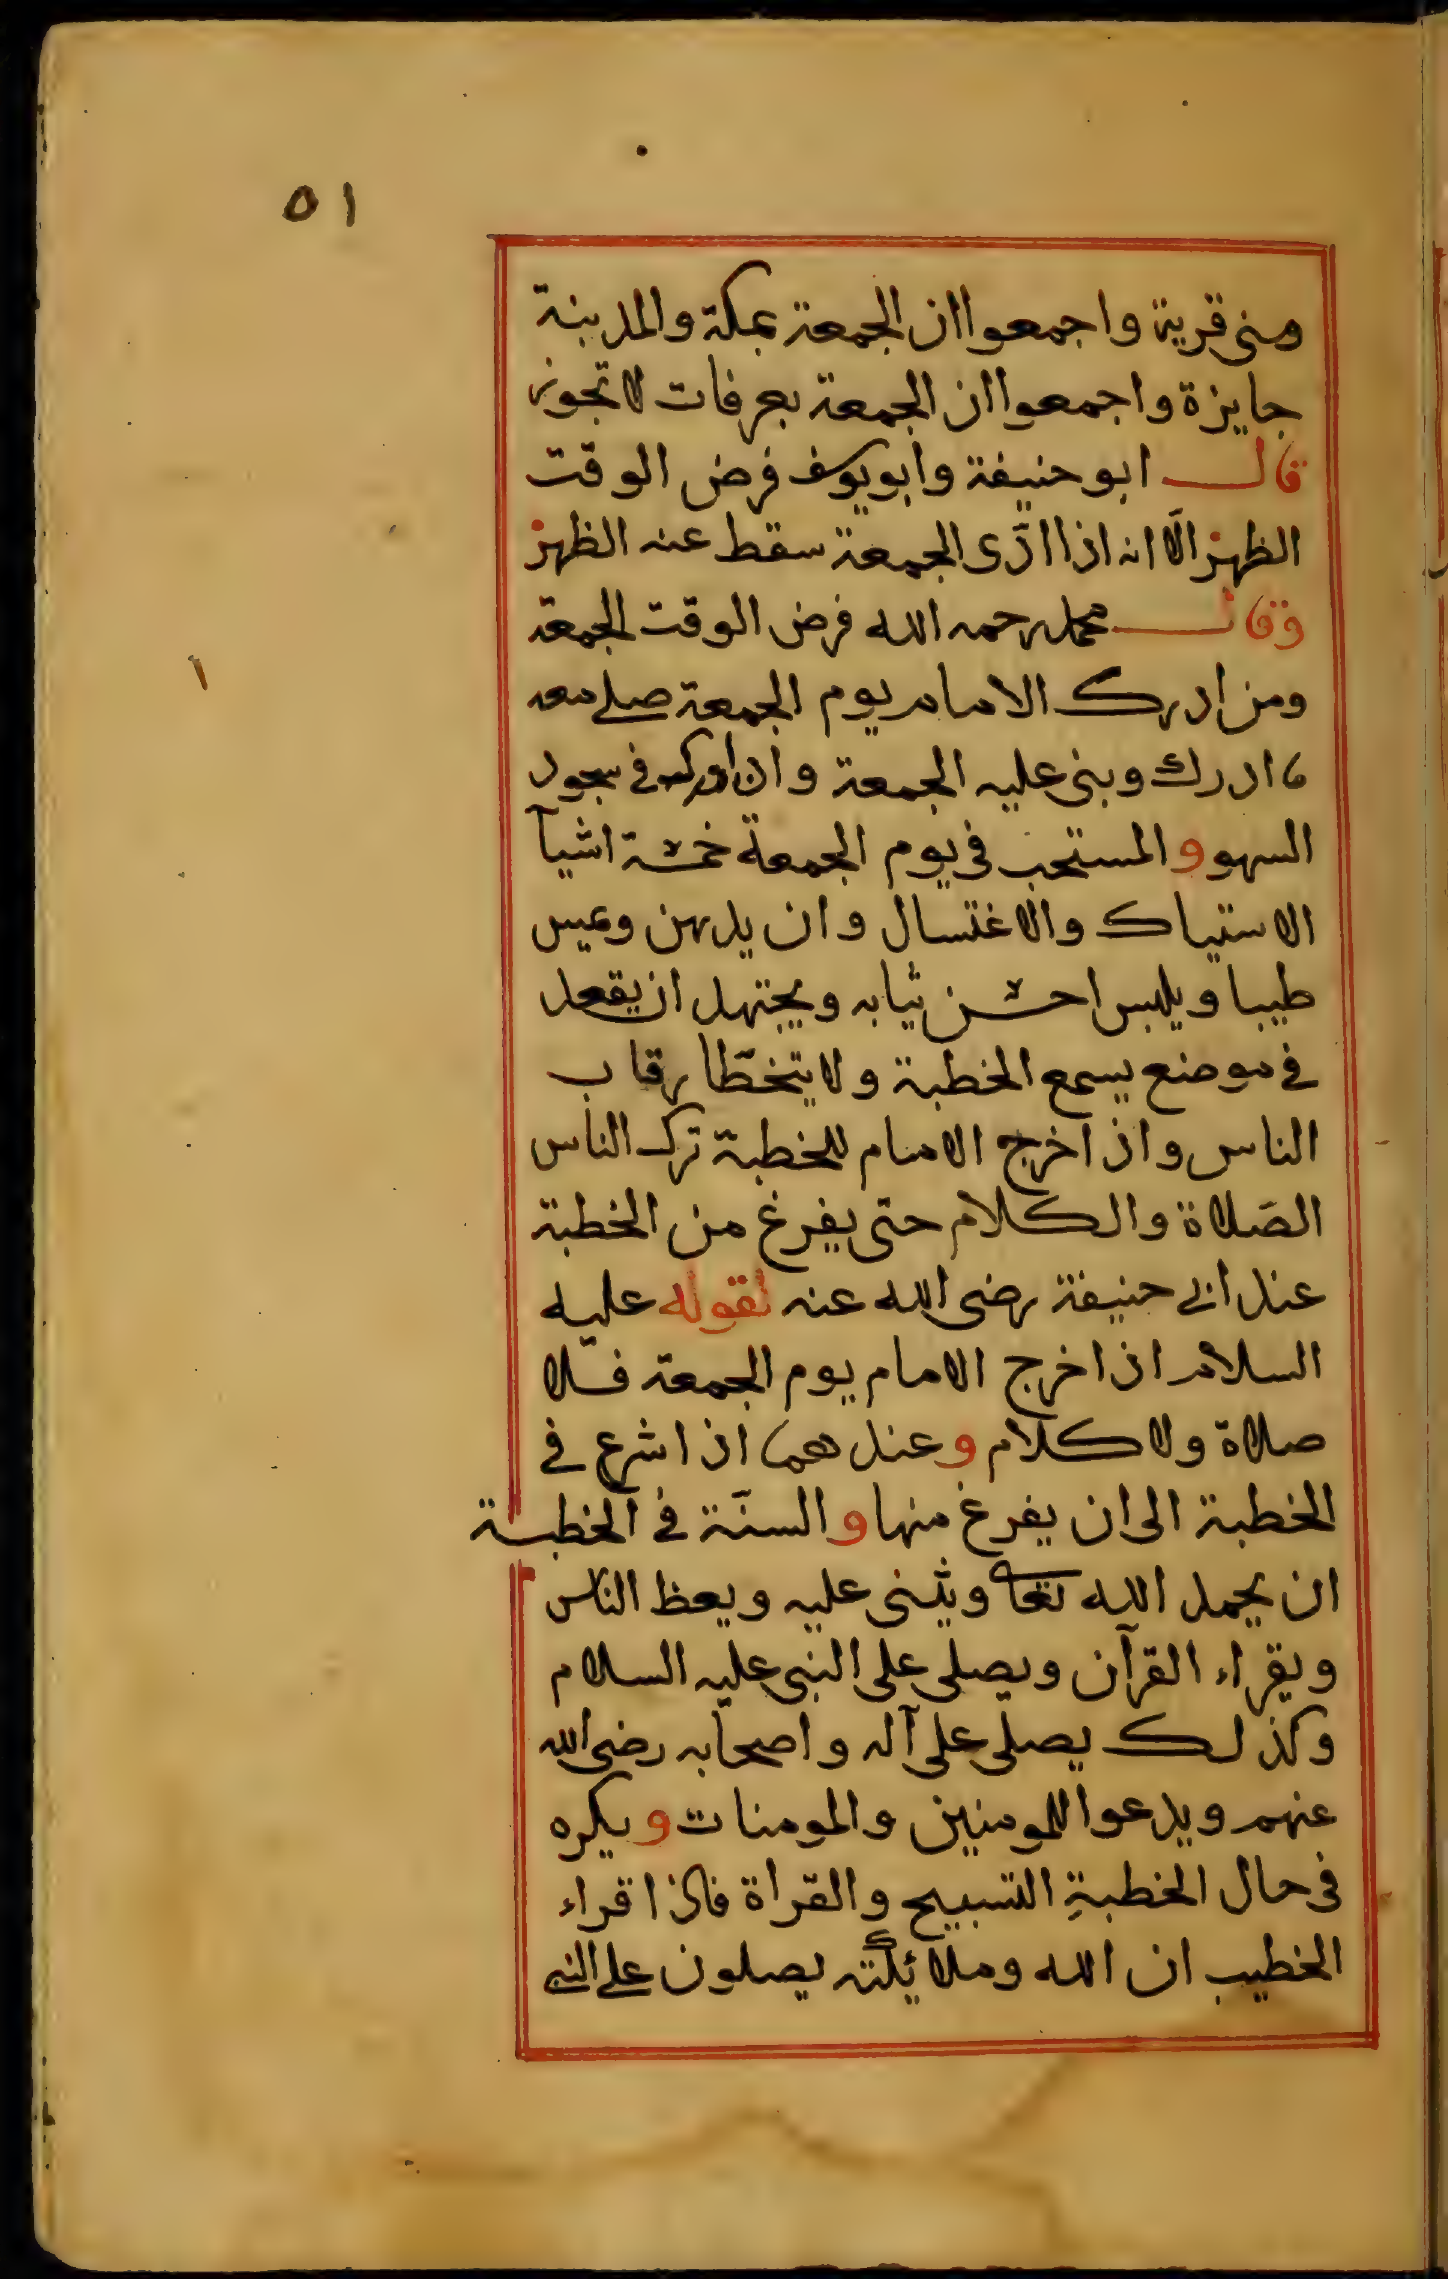 ٥١
ومنى قرية واجمعوا ان الجمعة بمكة والمدينة
جايزة واجمعوا ان الجمعة بعرفات لا تجوز
قال ابو حنيفة وابويوسف فرض الوقت
الظهر الّا انه اذا ادّى الجمعة سقط عنه الظهر
وقال محمد رحمه الله فرض الوقت الجمعة
ومن ادرك الامام يوم الجمعة صلى معه
ما ادرك وبنى عليه الجمعة وان ادركه في سجود
السهو والمستحب في يوم الجمعة خمسة اشيآ
الاستياك والاغتسال وان يدهن ويمس
طيبا ويلبس احسن ثيابه ويجتهد ان يقعد
في موضع يسمع الخطبة ولا يتخطّا رقاب
الناس واذا خرج الامام للخطبة ترك الناس
الصَلاة والكلام حتى يفرغ من الخطبة
عند ابي حنيفة رضى الله عنه لقوله عليه
السلام اذا خرج الامام يوم الجمعة فلا
صلاة ولا كلام وعندهما اذا شرع في
الخطبة الى ان يفرغ منها والسنّة في الخطبة
ان يحمد الله تعا ويثنى عليه ويعظ الناس
ويقراء القرآن ويصلى على النبى عليه السلام
وكذلك يصلى على آله واصحابه رضى الله
عنهم ويدعوا للمومنين والمومنات ويكره
فى حال الخطبةِ التسبيح والقراة فاذا قراء
الخطيب ان الله وملائكته يصلون على النبي